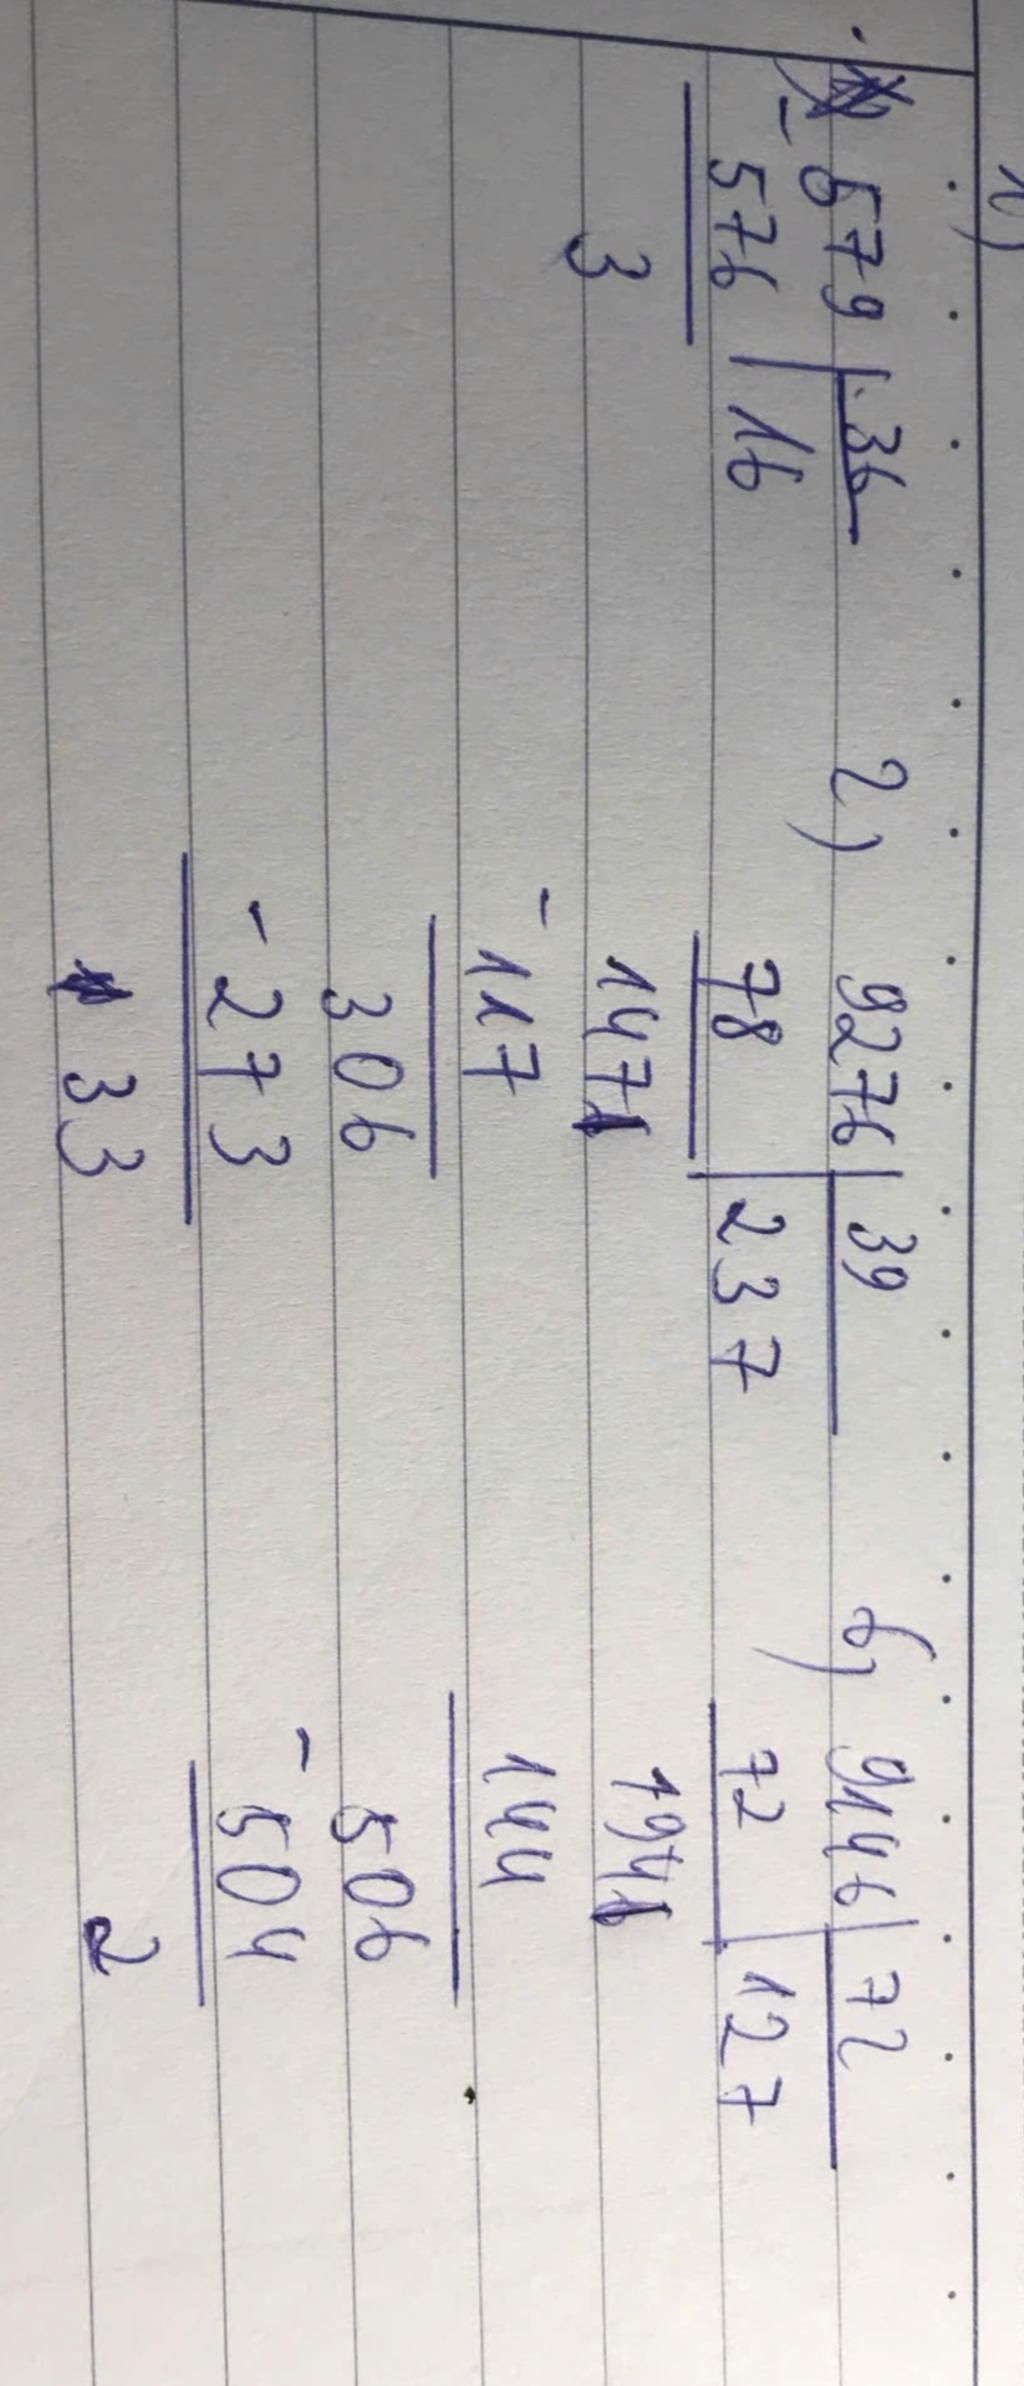 1)
- 579 | 36
576 | 16
3
2) 9276 | 39
78 | 237
147
- 117
306
- 273
33
b) 9146 | 72
72 | 127
194
144
506
- 504
2